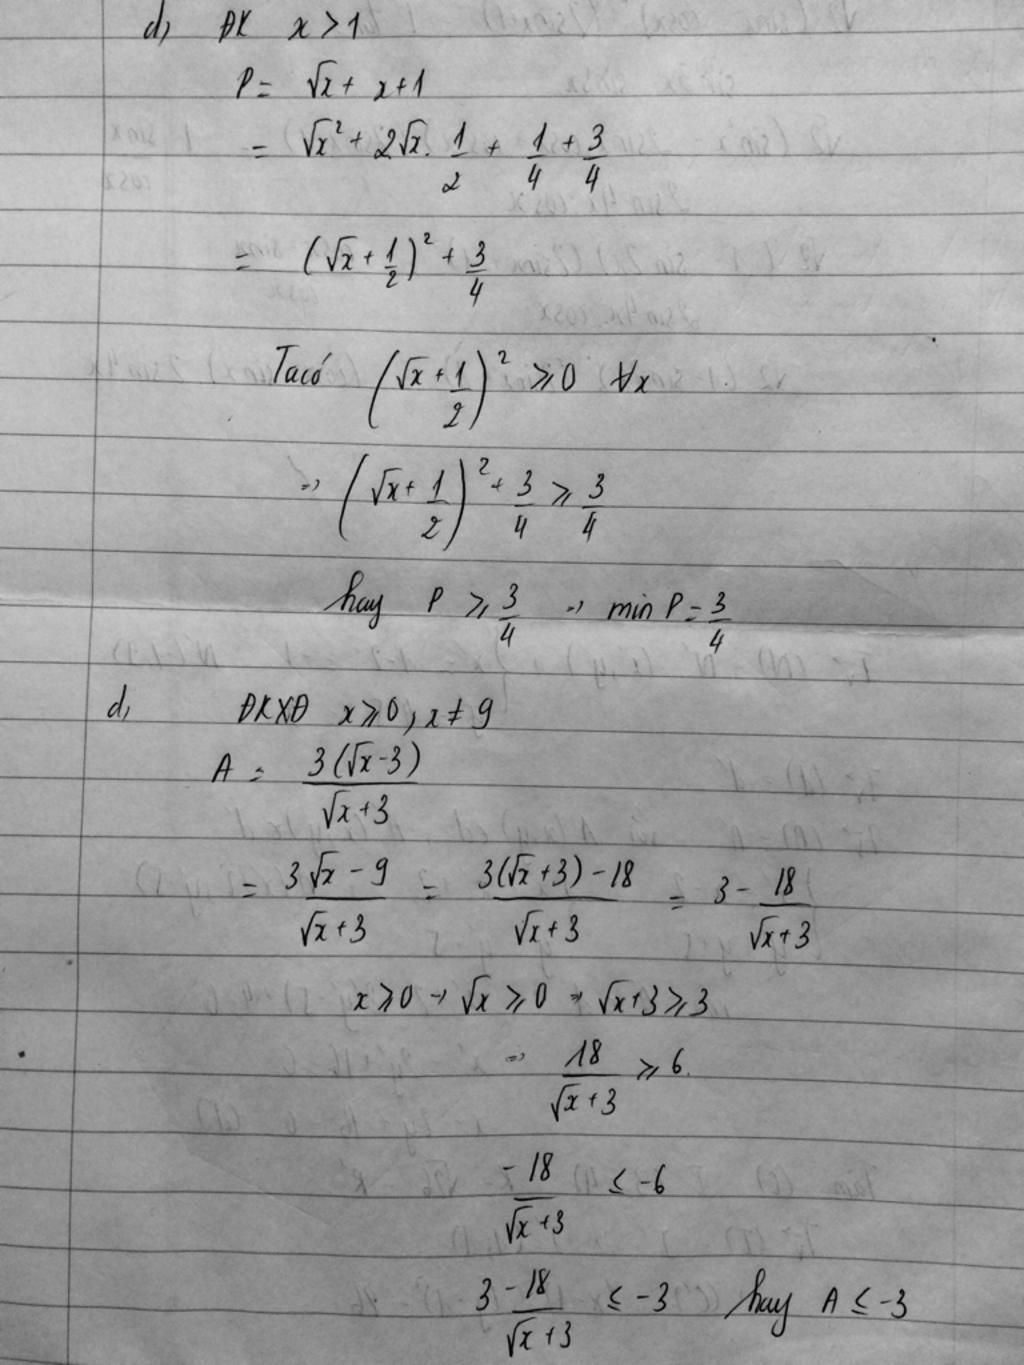 d, ĐK x > 1
P = √x + x + 1
= √x² + 2√x . 1/2 + 1/4 + 3/4
= (√x + 1/2)² + 3/4
Ta có (√x + 1/2)² ⩾ 0 ∀x
⇒ (√x + 1/2)² + 3/4 ⩾ 3/4
hay P ⩾ 3/4 ⇒ min P = 3/4
d, ĐKXĐ x ⩾ 0, x ≠ 9
A = 3(√x - 3)/(√x + 3)
= (3√x - 9)/(√x + 3) = (3(√x + 3) - 18)/(√x + 3) = 3 - 18/(√x + 3)
x ⩾ 0 → √x ⩾ 0 → √x + 3 ⩾ 3
⇒ 18/(√x + 3) ⩾ 6.
-18/(√x + 3) ≤ -6
3 - 18/(√x + 3) ≤ -3 hay A ≤ -3